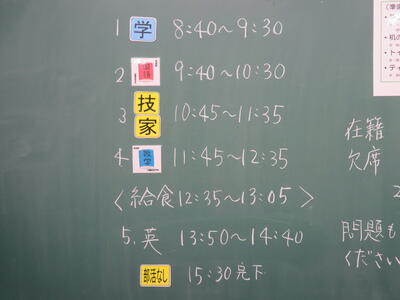 1 学 8:40〜9:30
2 国語 9:40〜10:30
3 技家 10:45〜11:35
4 数学 11:45〜12:35
〈給食12:35〜13:05〉
5.英 13:50〜14:40
部活なし 15:30完下
在籍
欠席
問題も
ください